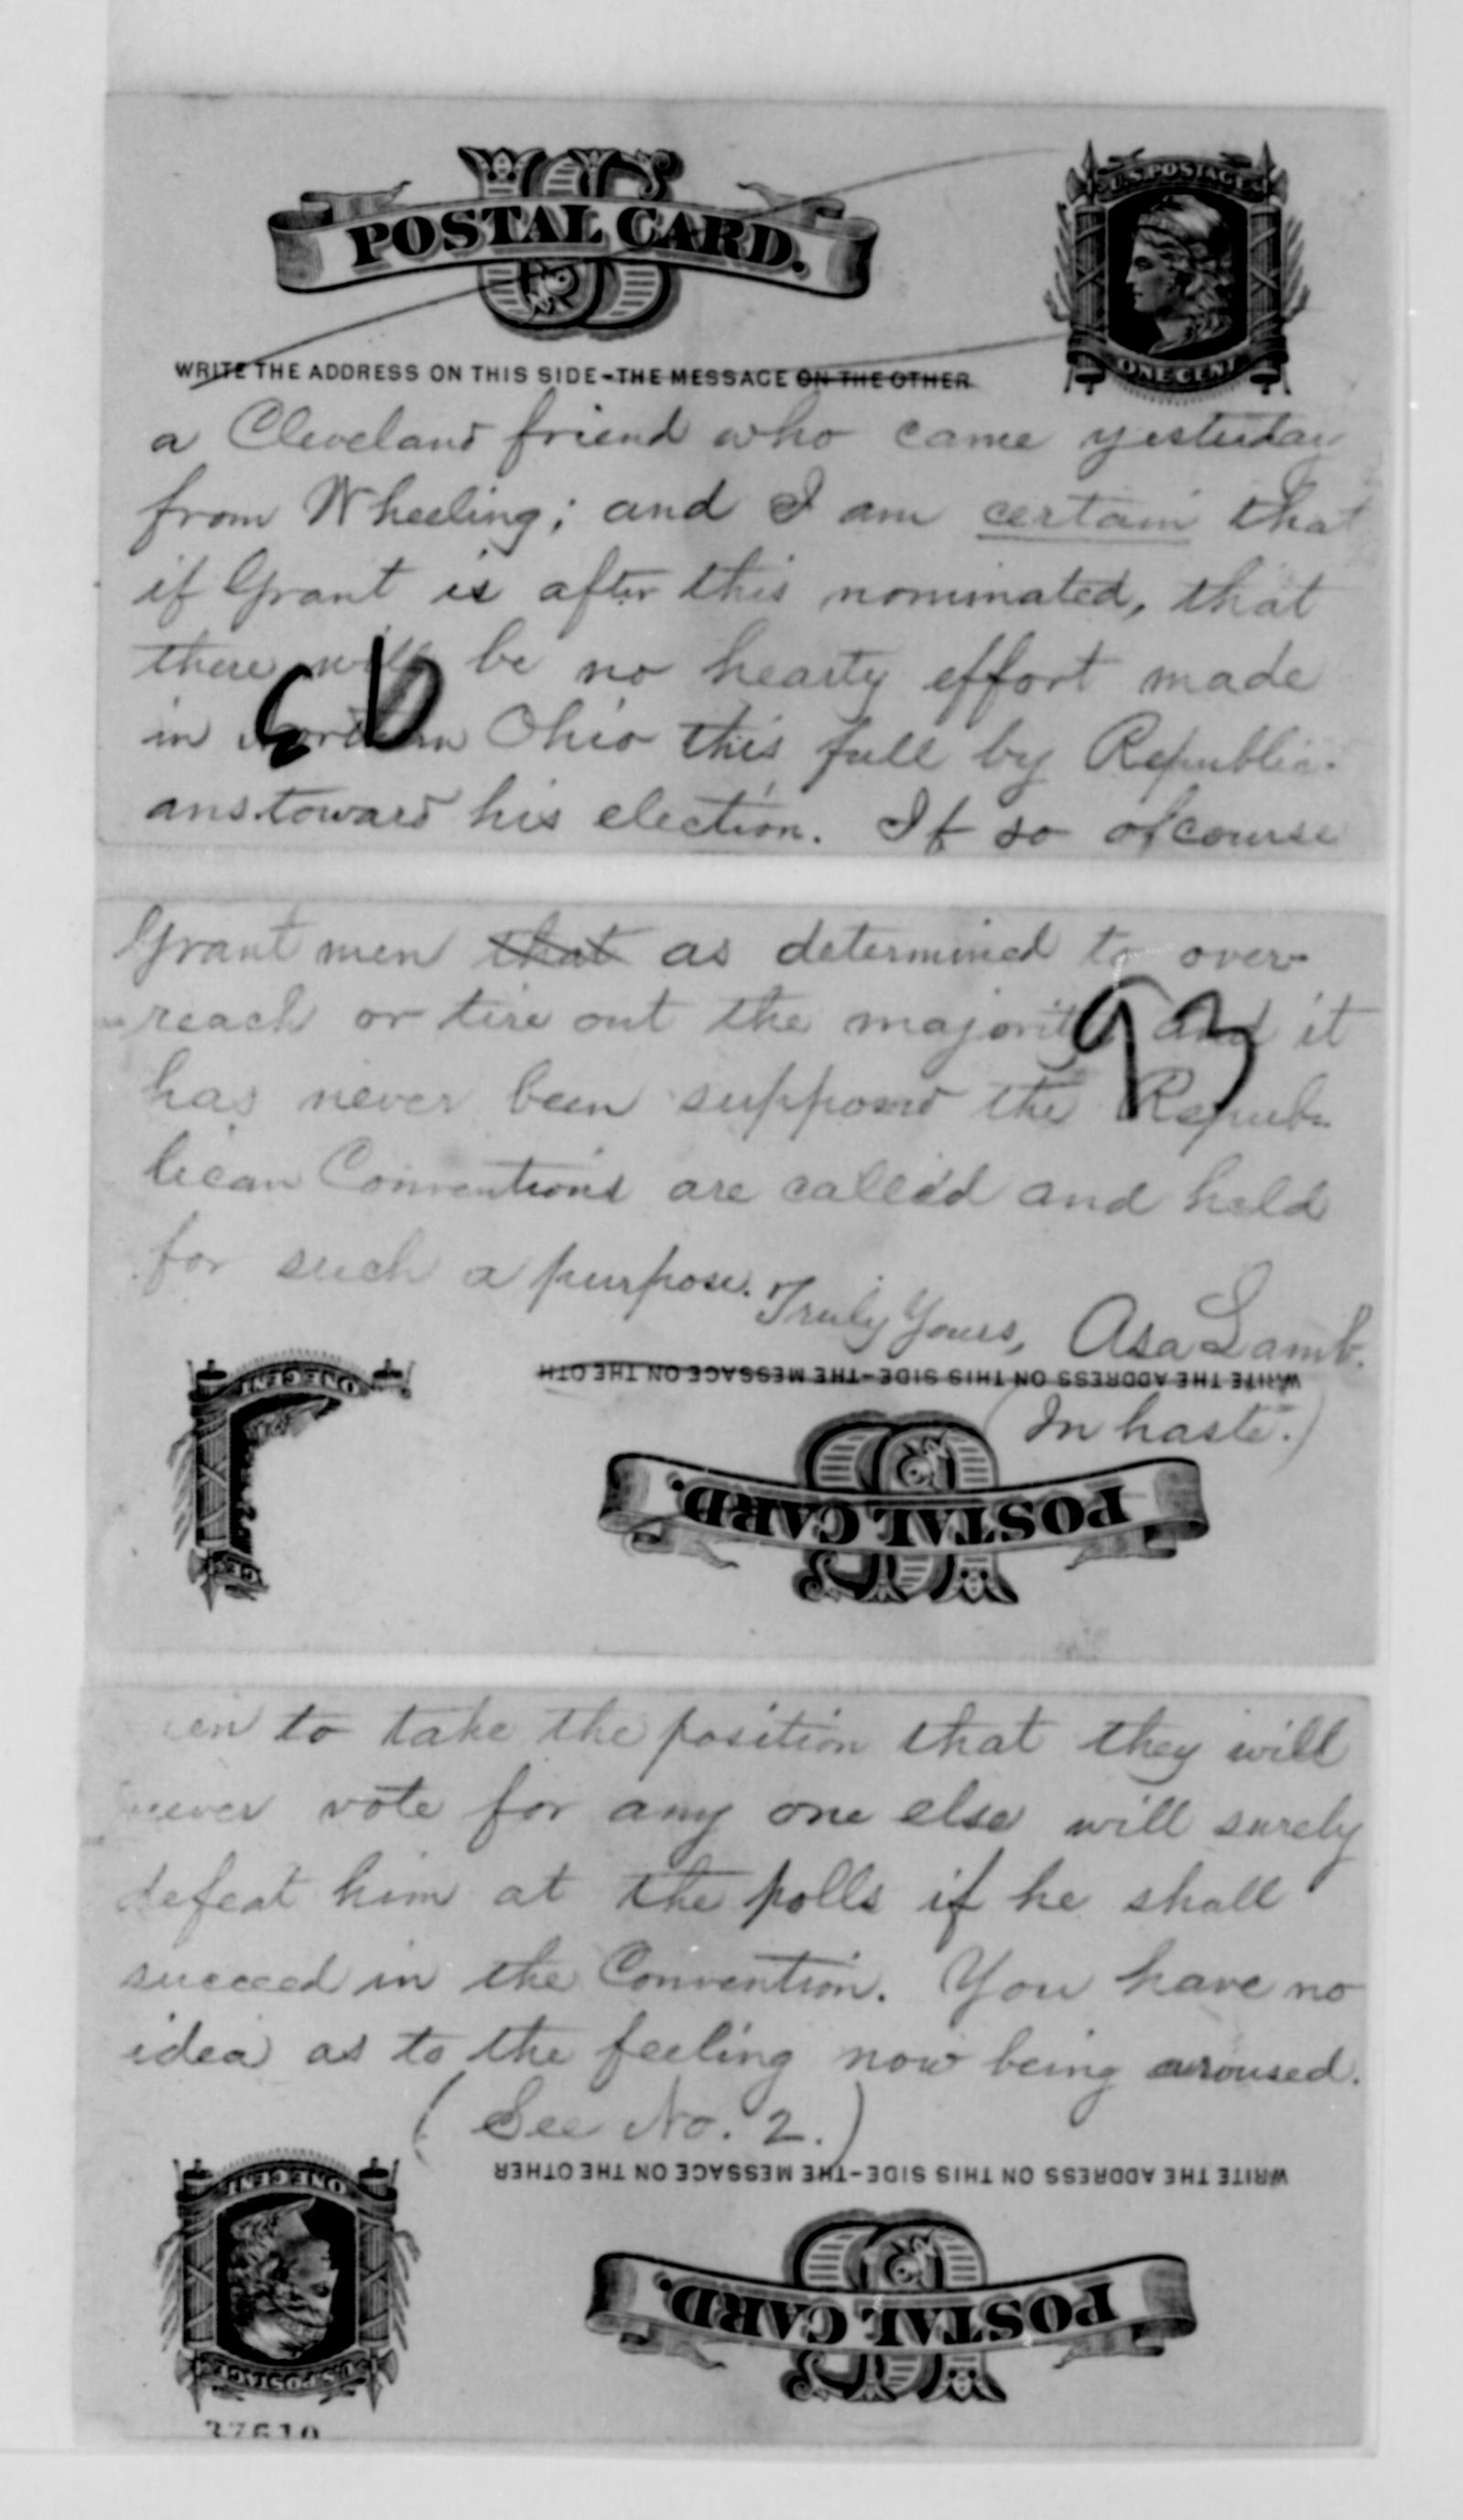 US
POSTAL CARD.
U.S. POSTAGE
ONE CENT
WRITE THE ADDRESS ON THIS SIDE-THE MESSAGE ON THE OTHER
a Cleveland friend who came yesterday
from Wheeling; and I am certain that
if Grant is after this nominated, that
there will be no hearty effort made
in Northern Ohio this fall by Republic-
ans toward his election. If so of course
Grant men that as determined to over-
reach or tire out the majority and it
93
has never been supposed the Repub-
lican Conventions are called and held
for such a purpose.
Truly Yours, Asa Lamb.
WRITE THE ADDRESS ON THIS SIDE-THE MESSAGE ON THE OTH
(In haste.)
ONE CENT
POSTAL CARD.
US
GE
en to take the position that they will
never vote for any one else will surely
defeat him at the polls if he shall
succeed in the Convention. You have no
idea as to the feeling now being aroused.
(See No. 2.)
WRITE THE ADDRESS ON THIS SIDE-THE MESSAGE ON THE OTHER
ONE CENT
U.S. POSTAGE
POSTAL CARD.
US
37610